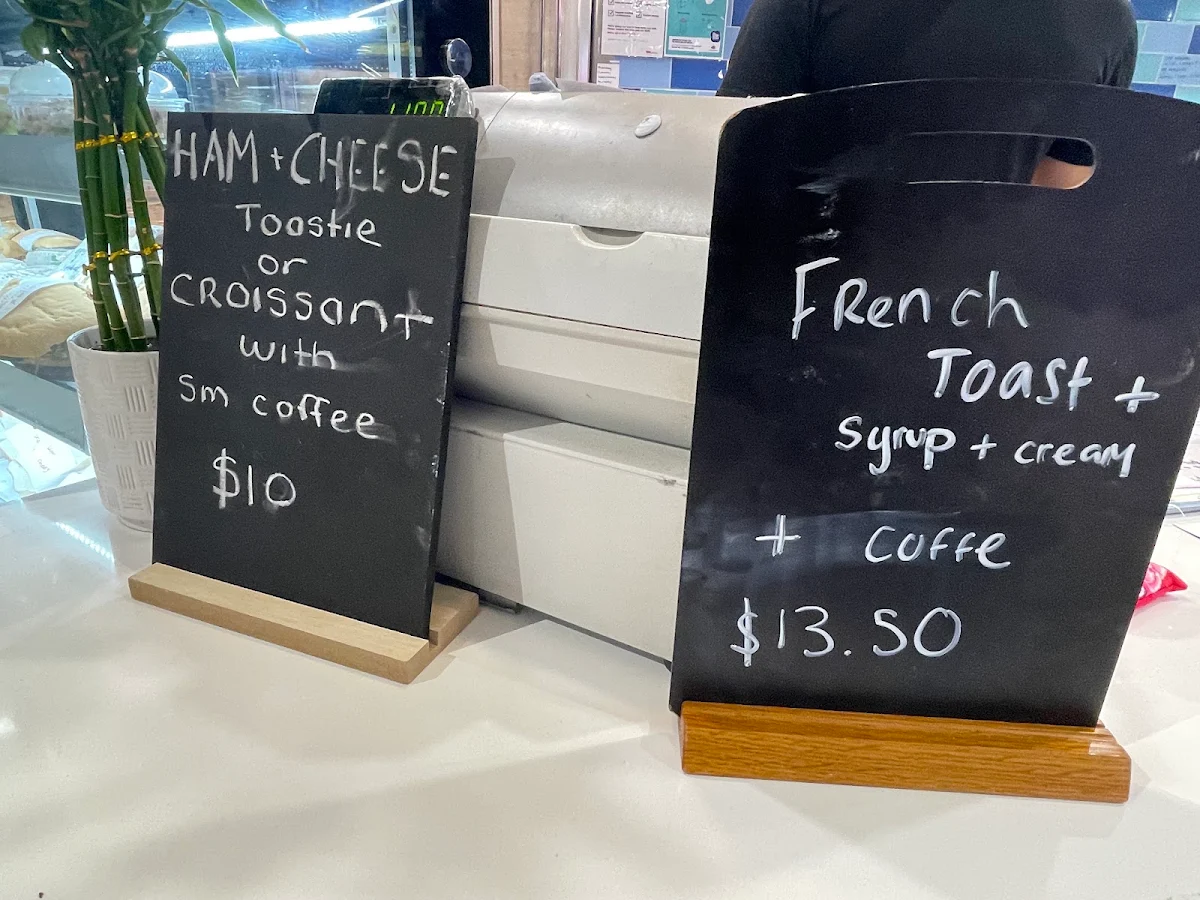 HAM + CHEESE
Toastie
or
CROISSANt
with
Sm coffee
$10
FRench
Toast +
Syrup + cream
+ Coffe
$13.50